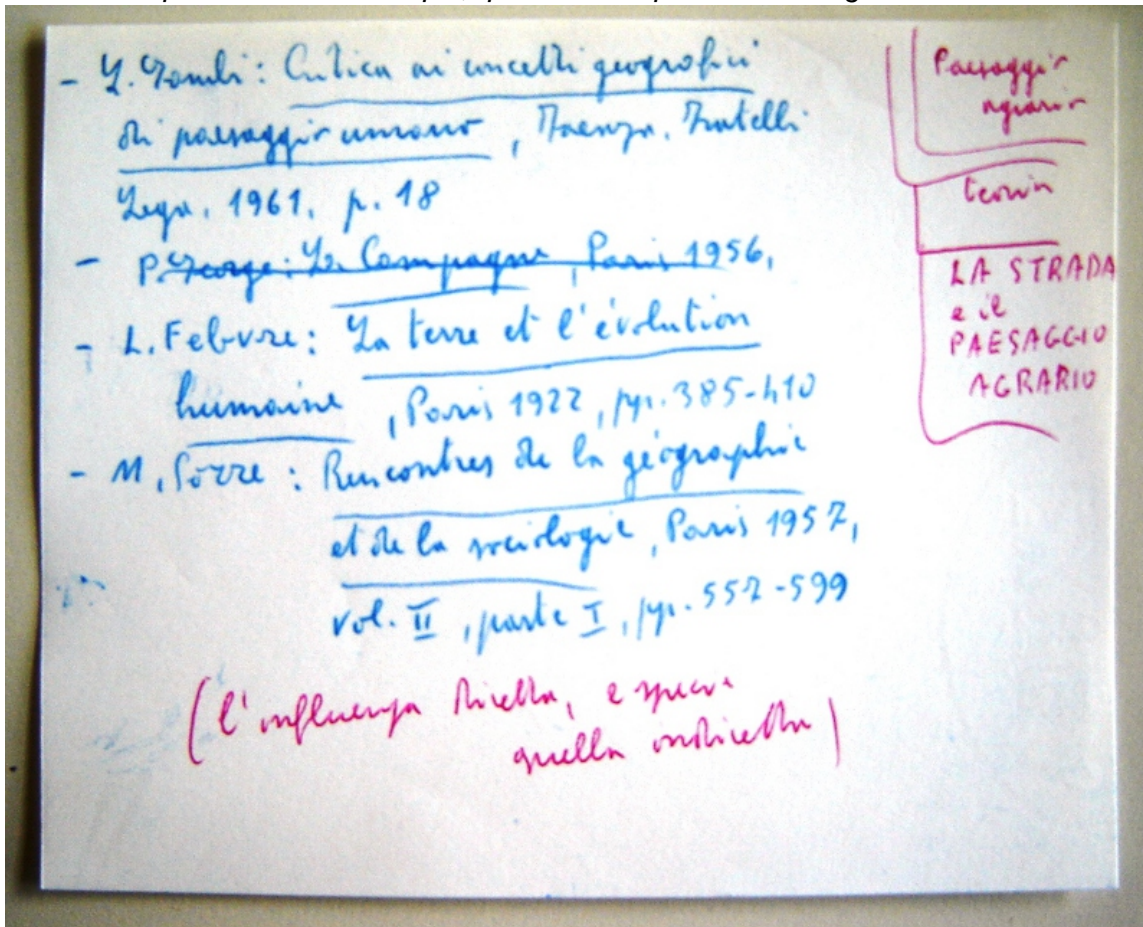 - L. Gambi: Critica ai concetti geografici
di paesaggio umano, Faenza. Fratelli
Lega. 1961, p. 18
- P. George: La Campagne, Paris 1956,
- L. Febvre: La terre et l'évolution
humaine, Paris 1922, pp. 385-410
- M. Sorre: Rencontres de la géographie
et de la sociologie, Paris 1957,
vol. II, parte I, pp. 557-599
(l'influenza diretta, e spesso
quella indiretta)
Paesaggio
agrario
teoria
LA STRADA
e il
PAESAGGIO
AGRARIO